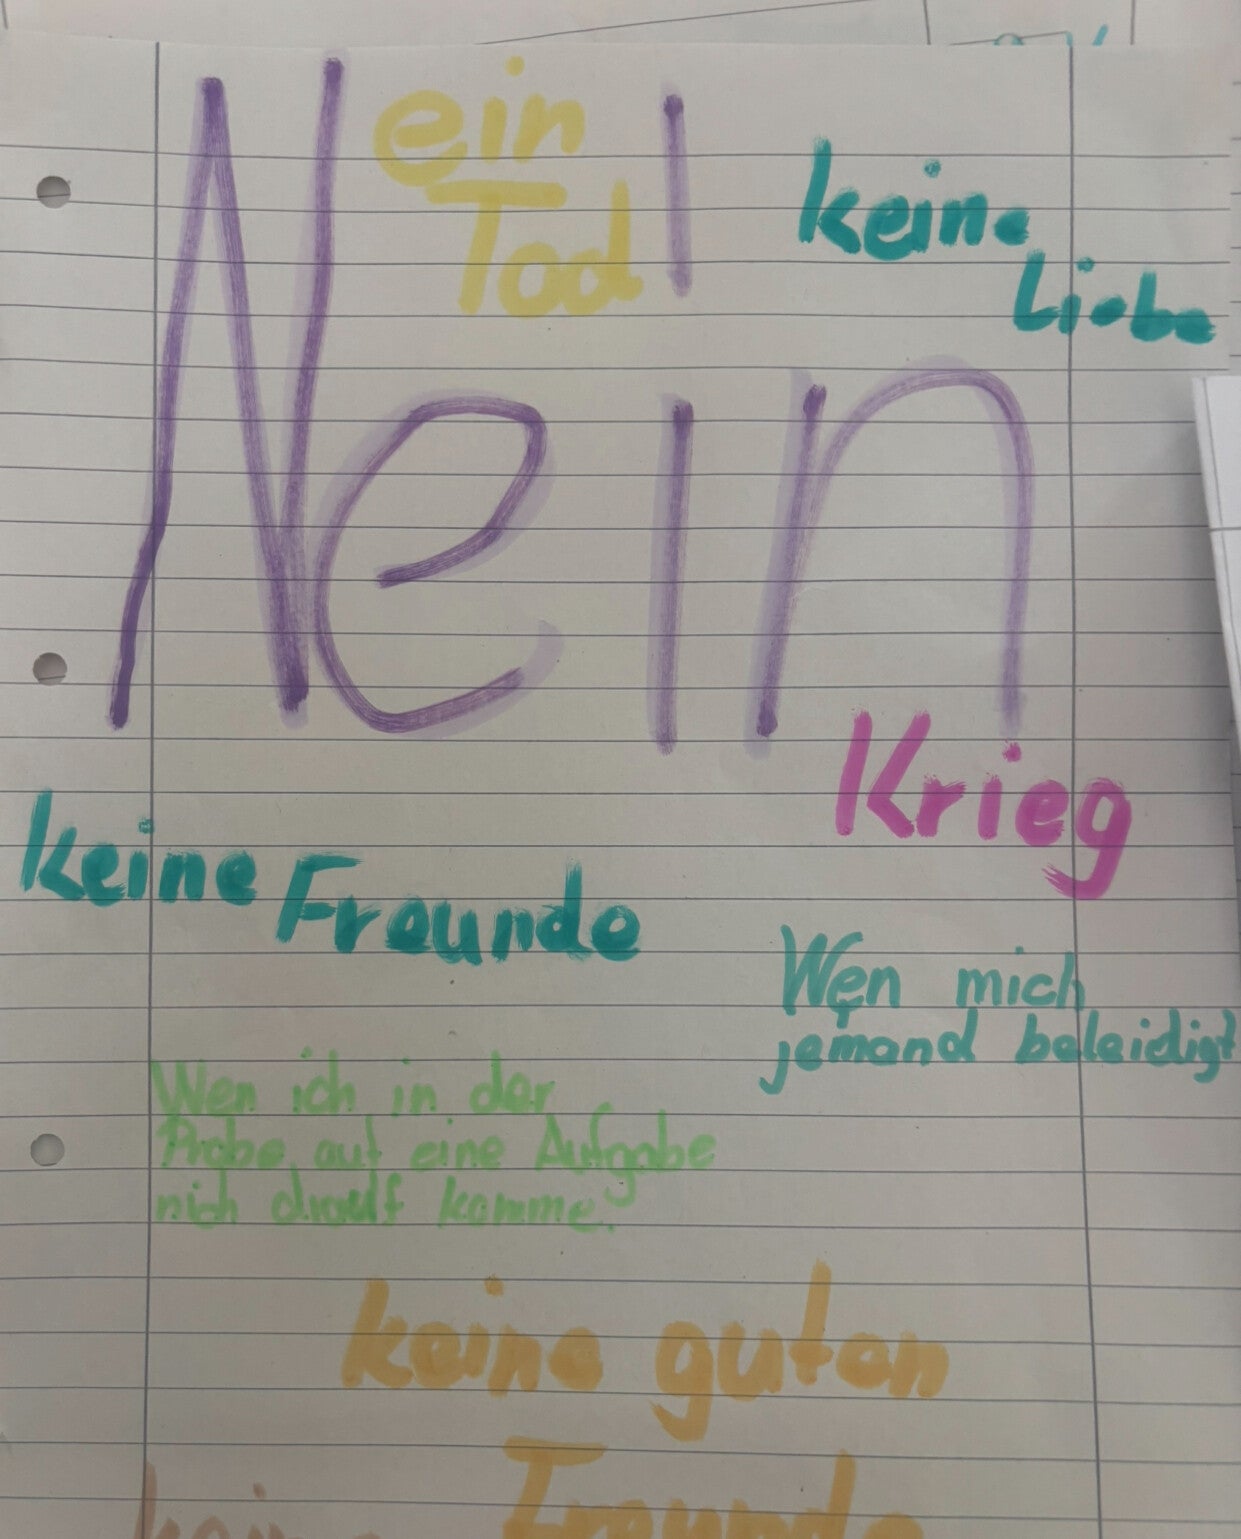 ein
Tod
keine
Liebe
Nein
Krieg
keine Freunde
Wen mich
jemand beleidigt
Wen ich in der
Probe auf eine Aufgabe
nich drauf komme.
keine guten
Freunde
keine